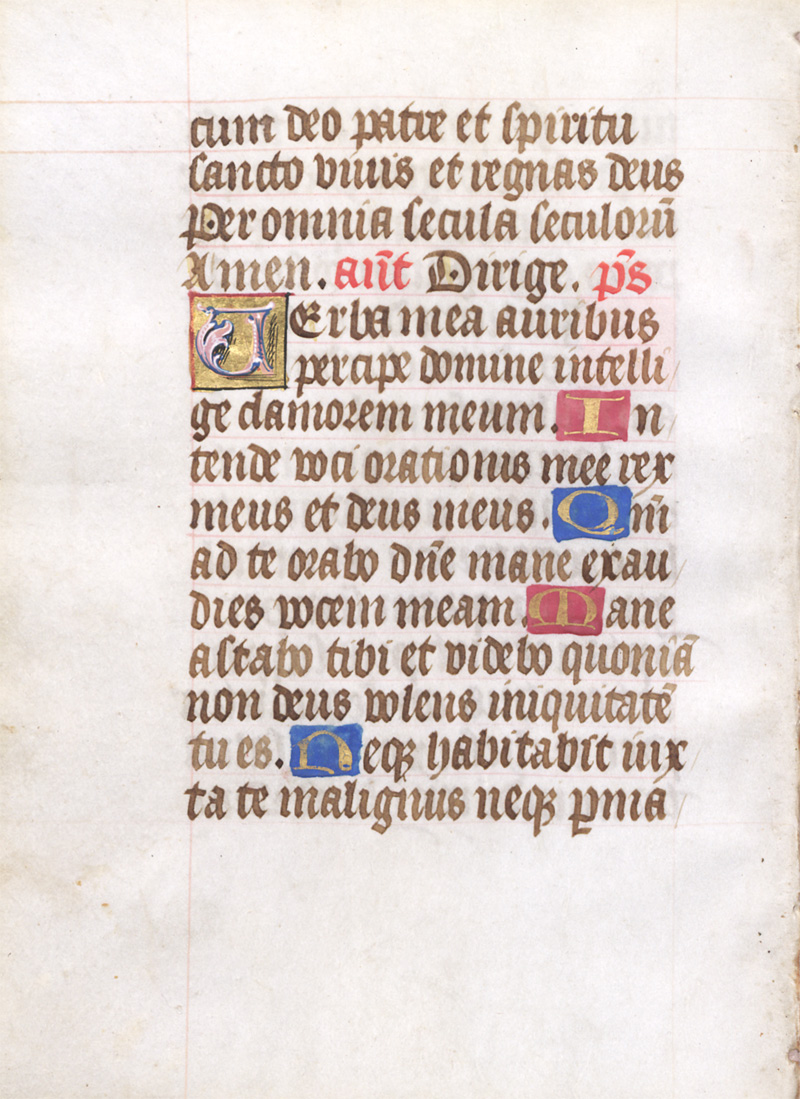 cum deo patre et spiritu
sancto viuis et regnas deus
Per omnia secula seculorū
Amen. an̄t Dirige. p̄s
UErba mea auribus
percipe domine intelli
ge clamorem meum. In
tende voci orationis mee rex
meus et deus meus. Qm̄
ad te orabo dn̄e mane exau
dies vocem meam. Mane
astabo tibi et videbo quoniā
non deus volens iniquitatē
tu es. Neqꝫ habitabit iux
ta te malignus neqꝫ ꝑma